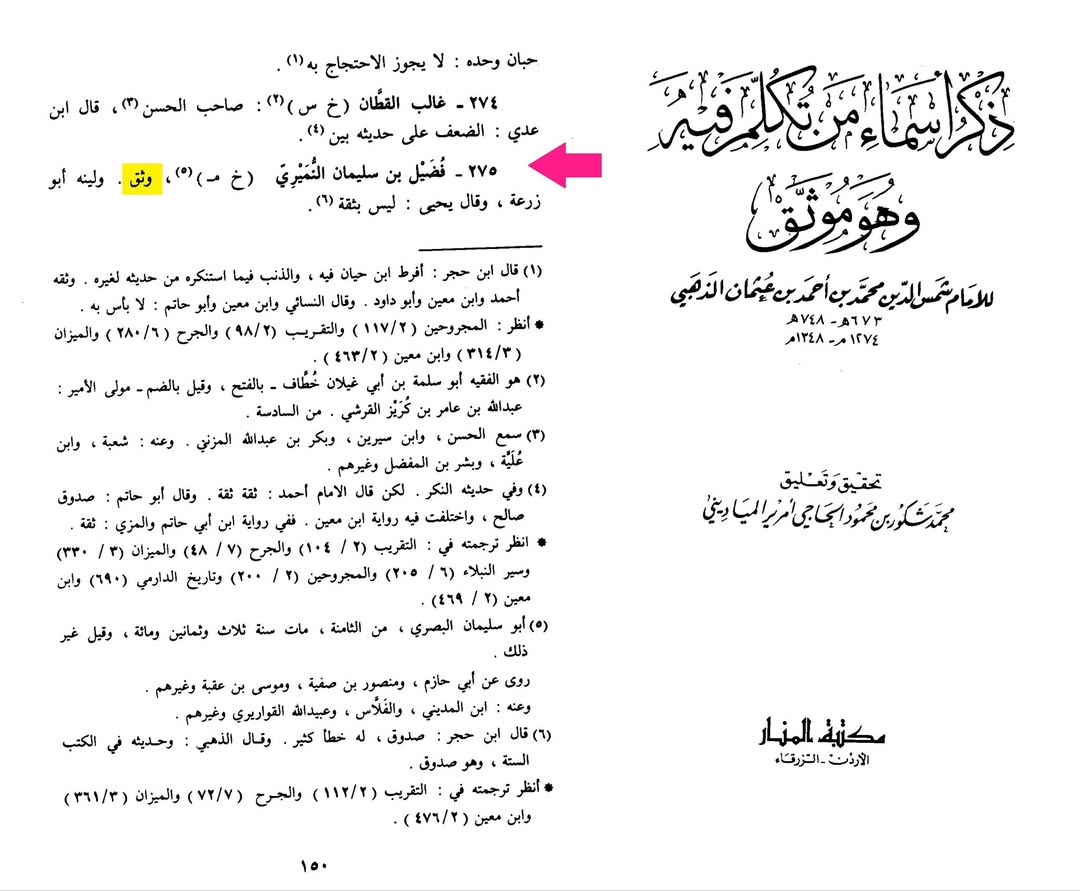 ذكر أسماء من تكلم فيه
وهو موثق
للامام شمس الدين محمد بن أحمد بن عثمان الذهبي
٦٧٣هـ - ٧٤٨هـ
١٢٧٤م - ١٣٤٨م
تحقيق وتعليق
محمد شكور بن محمود الحاجي أمرير المياديني
مكتبة المنار
الأردن - الزرقاء
حبان وحده : لا يجوز الاحتجاج به (١) .
٢٧٤ - غالب القطَّان (خ س) (٢) : صاحب الحسن (٣) ، قال ابن
عدي : الضعف على حديثه بين (٤) .
٢٧٥ - فُضَيْل بن سليمان النُّمَيْرِيّ (خ مـ) (٥) ، وثق . ولينه أبو
زرعة ، وقال يحيى : ليس بثقة (٦) .
(١) قال ابن حجر : أفرط ابن حيان فيه ، والذنب فيما استنكره من حديثه لغيره . وثقه
أحمد وابن معين وأبو داود . وقال النسائي وابن معين وأبو حاتم : لا بأس به .
* أنظر : المجروحين (١١٧/٢) والتقريب (٩٨/٢) والجرح (٢٨٠/٦) والميزان
(٣١٤/٣) وابن معين (٤٦٣/٢) .
(٢) هو الفقيه أبو سلمة بن أبي غيلان خُطَّاف - بالفتح ، وقيل بالضم - مولى الأمير :
عبدالله بن عامر بن كُرَيْز القرشي . من السادسة .
(٣) سمع الحسن ، وابن سيرين ، وبكر بن عبدالله المزني . وعنه : شعبة ، وابن
عُلَيَّة ، وبشر بن المفضل وغيرهم .
(٤) وفي حديثه النكر . لكن قال الامام أحمد : ثقة ثقة . وقال أبو حاتم : صدوق
صالح ، واختلفت فيه رواية ابن معين . ففي رواية ابن أبي حاتم والمزي : ثقة .
* انظر ترجمته في : التقريب (٢ / ١٠٤) والجرح (٧ / ٤٨) والميزان (٣ / ٣٣٠)
وسير النبلاء (٦ / ٢٠٥) والمجروحين (٢ / ٢٠٠) وتاريخ الدارمي (٦٩٠) وابن
معين (٢ / ٤٦٩) .
(٥) أبو سليمان البصري ، من الثامنة ، مات سنة ثلاث وثمانين ومائة ، وقيل غير
ذلك .
روى عن أبي حازم ، ومنصور بن صفية ، وموسى بن عقبة وغيرهم .
وعنه : ابن المديني ، والفَلَّاس ، وعبيدالله القواريري وغيرهم .
(٦) قال ابن حجر : صدوق ، له خطأ كثير . وقال الذهبي : وحديثه في الكتب
الستة ، وهو صدوق .
* أنظر ترجمته في : التقريب (١١٢/٢) والجرح (٧٢/٧) والميزان (٣٦١/٣)
وابن معين (٤٧٦/٢) .
١٥٠